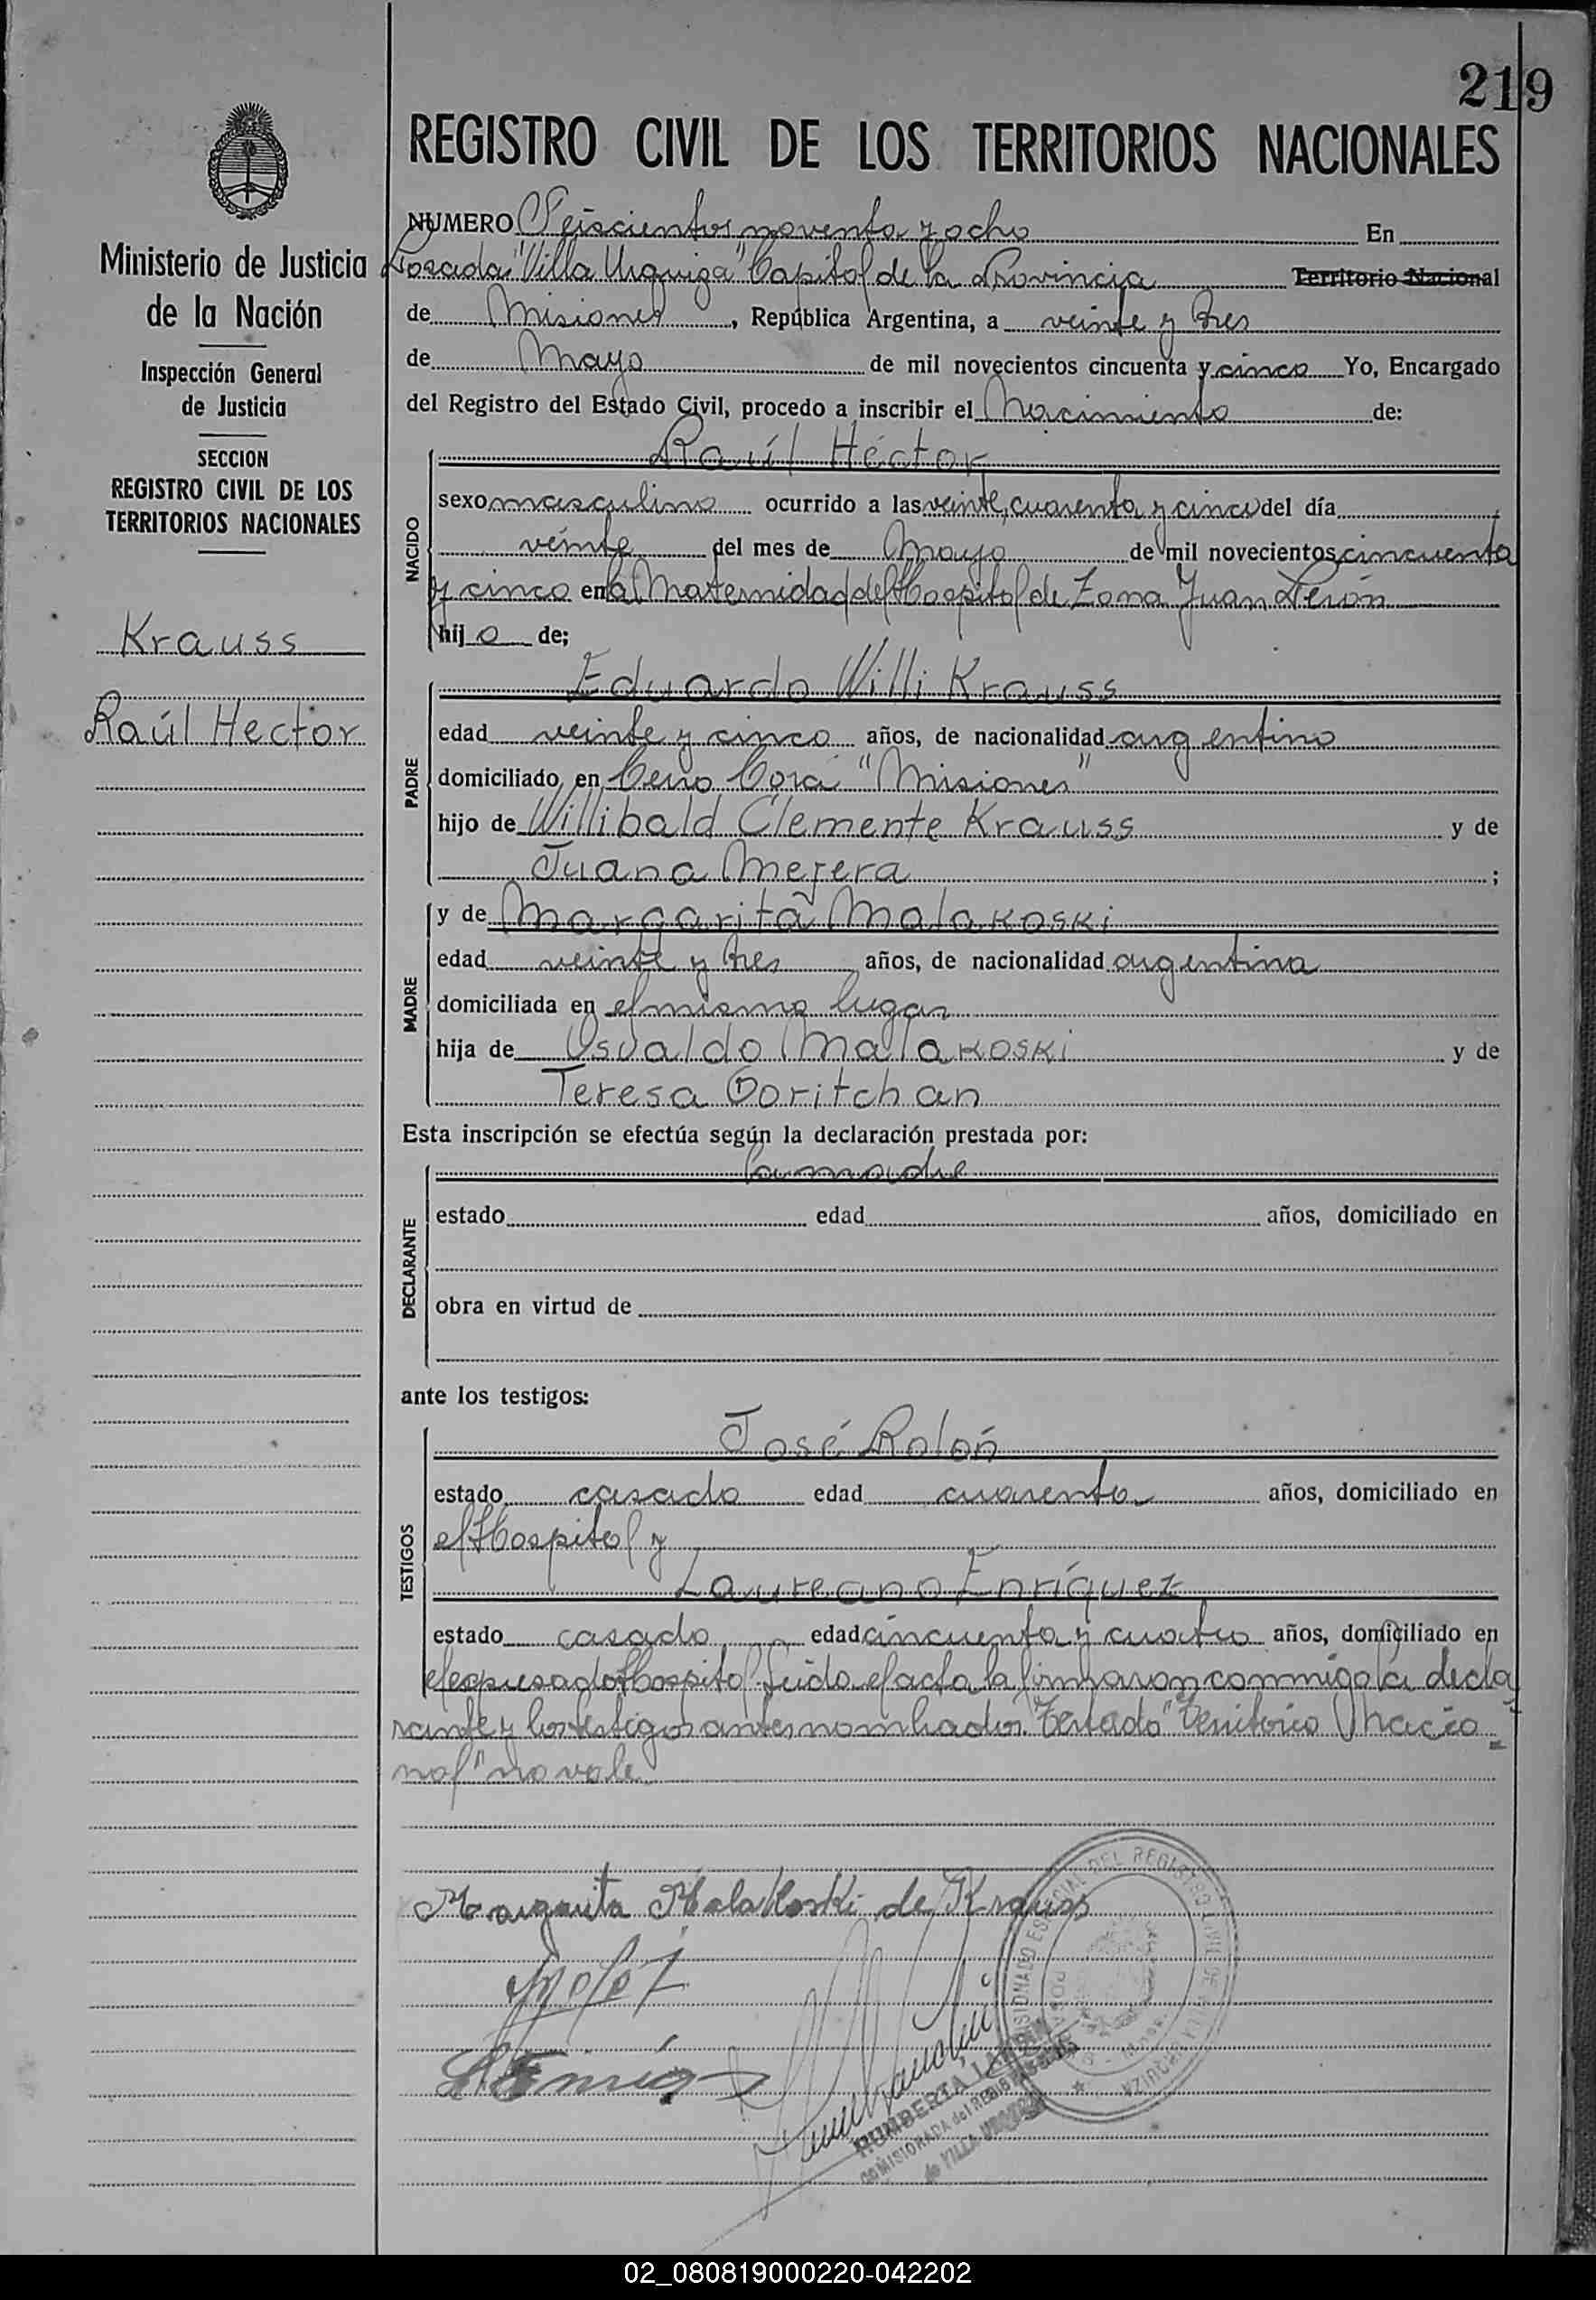 219
REGISTRO CIVIL DE LOS TERRITORIOS NACIONALES
Ministerio de Justicia
de la Nación
Inspección General
de Justicia
SECCION
REGISTRO CIVIL DE LOS
TERRITORIOS NACIONALES
Krauss
Raúl Hector
NUMERO Seiscientos noventa y ocho En
Posadas "Villa Urquiza" Capital de la Provincia Territorio Nacional
de Misiones, República Argentina, a veinte y tres
de Mayo de mil novecientos cincuenta y cinco Yo, Encargado
del Registro del Estado Civil, procedo a inscribir el Nacimiento de:
NACIDO
Raúl Héctor
sexo masculino ocurrido a las veinte, cuarenta y cinco del día
veinte del mes de Mayo de mil novecientos cincuenta
y cinco en la Maternidad del Hospital de Zona Juan Perón
hijo de;
PADRE
Eduardo Willi Krauss
edad veinte y cinco años, de nacionalidad argentino
domiciliado en Cerro Corá "Misiones"
hijo de Willibald Clemente Krauss y de
Juana Merera;
MADRE
y de Margarita Malakoski
edad veinte y tres años, de nacionalidad argentina
domiciliada en el mismo lugar
hija de Osvaldo Malakoski y de
Teresa Boritchan
Esta inscripción se efectúa según la declaración prestada por:
DECLARANTE
la madre
estado edad años, domiciliado en
obra en virtud de
ante los testigos:
TESTIGOS
José Rolón
estado casado edad cuarenta años, domiciliado en
el Hospital y
Laureano Enríquez
estado casado edad cincuenta y cuatro años, domiciliado en
el expresado Hospital. Leida el acta la firmaron conmigo la decla
rante y los testigos antes nombrados. Testado "Territorio Nacio
nal" no vale
Margarita Malakoski de Krauss
COMISIONADO ESPECIAL DEL REGISTRO CIVIL DE VILLA URQUIZA
HUMBERTA
COMISIONADA del REGISTRO
de VILLA URQUIZA
02_080819000220-042202